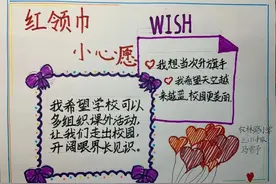 红领巾
小心愿
WISH
我想当次升旗手
我希望天空越
来越蓝,校园更美丽
我希望学校可以
多组织课外活动,
让我们走出校园,
开阔眼界长见识。